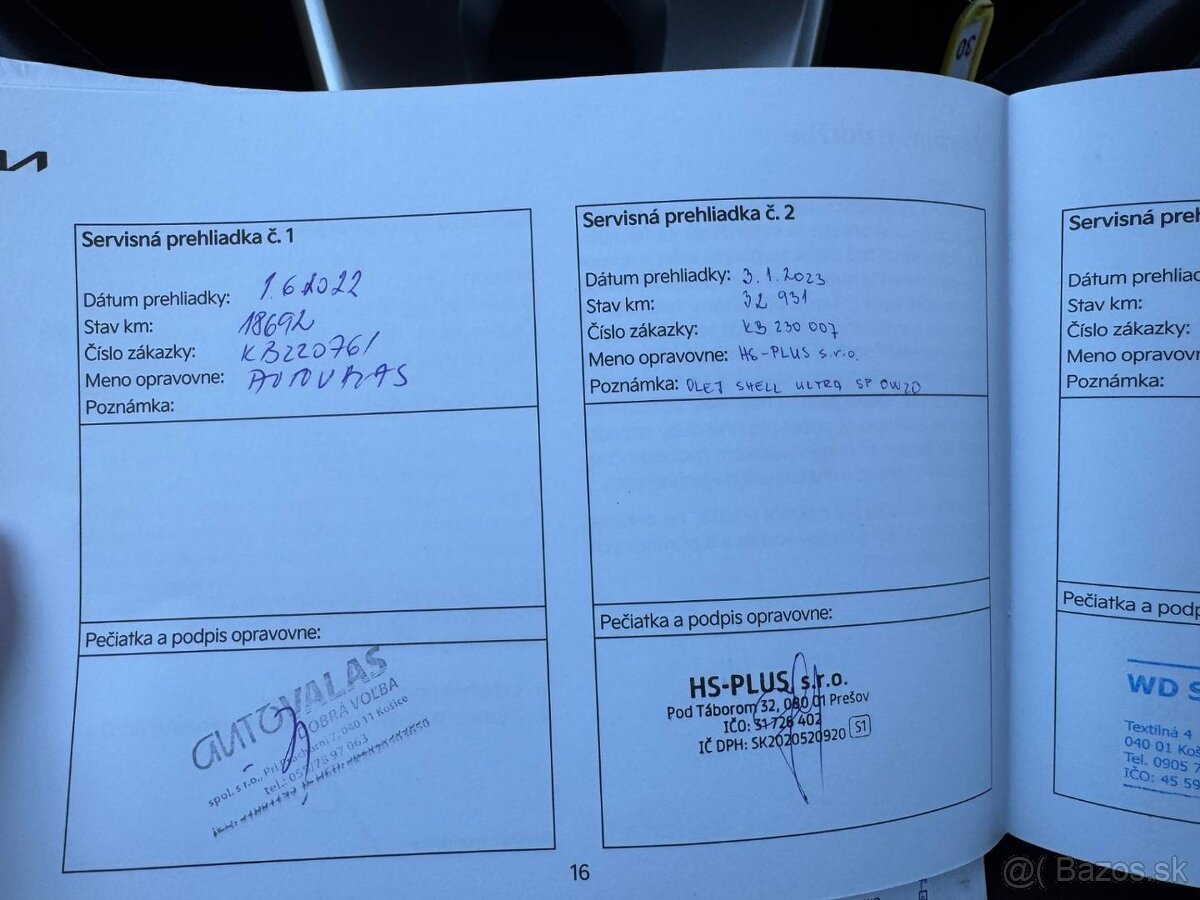 30
KIA
Servisná prehliadka č. 1
Dátum prehliadky: 1.6.2022
Stav km: 18692
Číslo zákazky: KB220761
Meno opravovne: AUTOVALAS
Poznámka:
Pečiatka a podpis opravovne:
AUTOVALAS
DOBRÁ VOĽBA
spol. s r.o., Pri prachárni 7, 040 11 Košice
tel.: 055/78 97 063
Servisná prehliadka č. 2
Dátum prehliadky: 3.1.2023
Stav km: 32 931
Číslo zákazky: KB 230 007
Meno opravovne: HS-PLUS s.r.o.
Poznámka: OLEJ SHELL ULTRA SP 0W20
Pečiatka a podpis opravovne:
HS-PLUS s.r.o.
Pod Táborom 32, 080 01 Prešov
IČO: 31 726 402
IČ DPH: SK2020520920 S1
16
Servisná preh
Dátum prehliad
Stav km:
Číslo zákazky:
Meno opravovn
Poznámka:
Pečiatka a podp
WD S
Textilná 4
040 01 Koš
Tel. 0905 7
IČO: 45 59
@( Bazos.sk